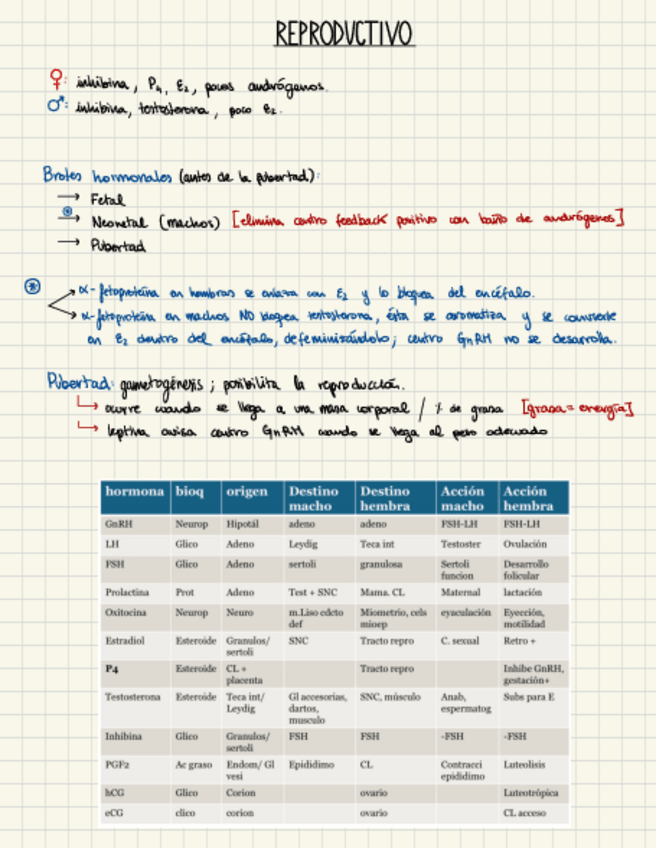 REPRODUCTIVO
♀: inhibina, P4, E2, pocos andrógenos.
♂: inhibina, testosterona, poco E2.
Brotes hormonales (antes de la pubertad):
→ Fetal
⊛→ Neonatal (machos) [elimina centro feedback positivo con baño de andrógenos]
→ Pubertad
⊛ α-fetoproteína en hembras se enlaza con E2 y lo bloquea del encéfalo.
α-fetoproteína en machos NO bloquea testosterona, ésta se aromatiza y se convierte
en E2 dentro del encéfalo, defeminizándolo; centro GnRH no se desarrolla.
Pubertad: gametogénesis; posibilita la reproducción.
↳ ocurre cuando se llega a una masa corporal / % de grasa [grasa = energía]
↳ leptina avisa centro GnRH cuando se llega al peso adecuado
hormona bioq origen Destino macho Destino hembra Acción macho Acción hembra
GnRH Neurop Hipotál adeno adeno FSH-LH FSH-LH
LH Glico Adeno Leydig Teca int Testoster Ovulación
FSH Glico Adeno sertoli granulosa Sertoli funcion Desarrollo folicular
Prolactina Prot Adeno Test + SNC Mama. CL Maternal lactación
Oxitocina Neurop Neuro m.Liso cdcto def Miometrio, cels mioep eyaculación Eyección, motilidad
Estradiol Esteroide Granulos/ sertoli SNC Tracto repro C. sexual Retro +
P4 Esteroide CL + placenta Tracto repro Inhibe GnRH, gestación+
Testosterona Esteroide Teca int/ Leydig Gl accesorias, dartos, musculo SNC, músculo Anab, espermatog Subs para E
Inhibina Glico Granulos/ sertoli FSH FSH -FSH -FSH
PGF2 Ac graso Endom/ Gl vesi Epididimo CL Contracci epididimo Luteolisis
hCG Glico Corion ovario Luteotrópica
eCG clico corion ovario CL acceso